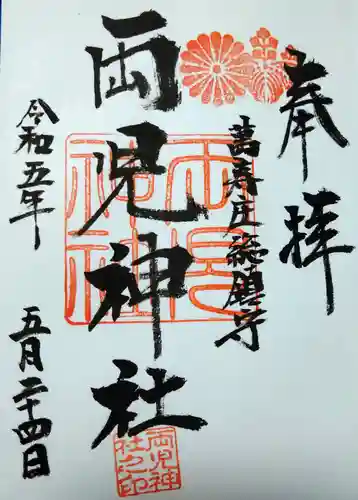 奉拝
萬寿庄総鎮守
両児神社
令和五年
五月二十四日
両児神社
両児神
社之印